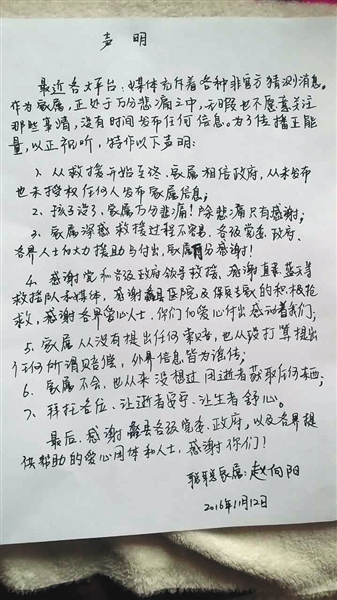 声明
最近各大平台、媒体充斥着各种非官方猜测消息。
作为家属,正处于万分悲痛之中,无暇也不愿意关注
那些事情,没有时间发布任何信息。为了传播正能
量,以正视听,特作以下声明:
1、从救援开始至终,家属相信政府,从未发布
也未授权任何人发布家属信息;
2、孩子没了,家属万分悲痛!除悲痛只有感谢;
3、家属深感救援过程不容易,各级党委、政府、
各界人士的大力援助与付出,家属万分感谢!
4、感谢党和各级政府领导救援,感谢直 蓝天等
救援队和媒体,感谢蠡县医院及保 的积极抢
救,感谢各界爱心人士,你们的爱心付出感动着我们;
5、家属从没有提出任何索赔,也从没打算提出
任何所谓赔偿,外界信息皆为谣传;
6、家属不会,也从来没想过因逝者获取任何东西;
7、拜托各位,让逝者安宁、让生者舒心。
最后,感谢蠡县各级党委、政府,以及各界提
供帮助的爱心团体和人士,感谢你们!
聪聪家属:赵向阳
2016年11月12日